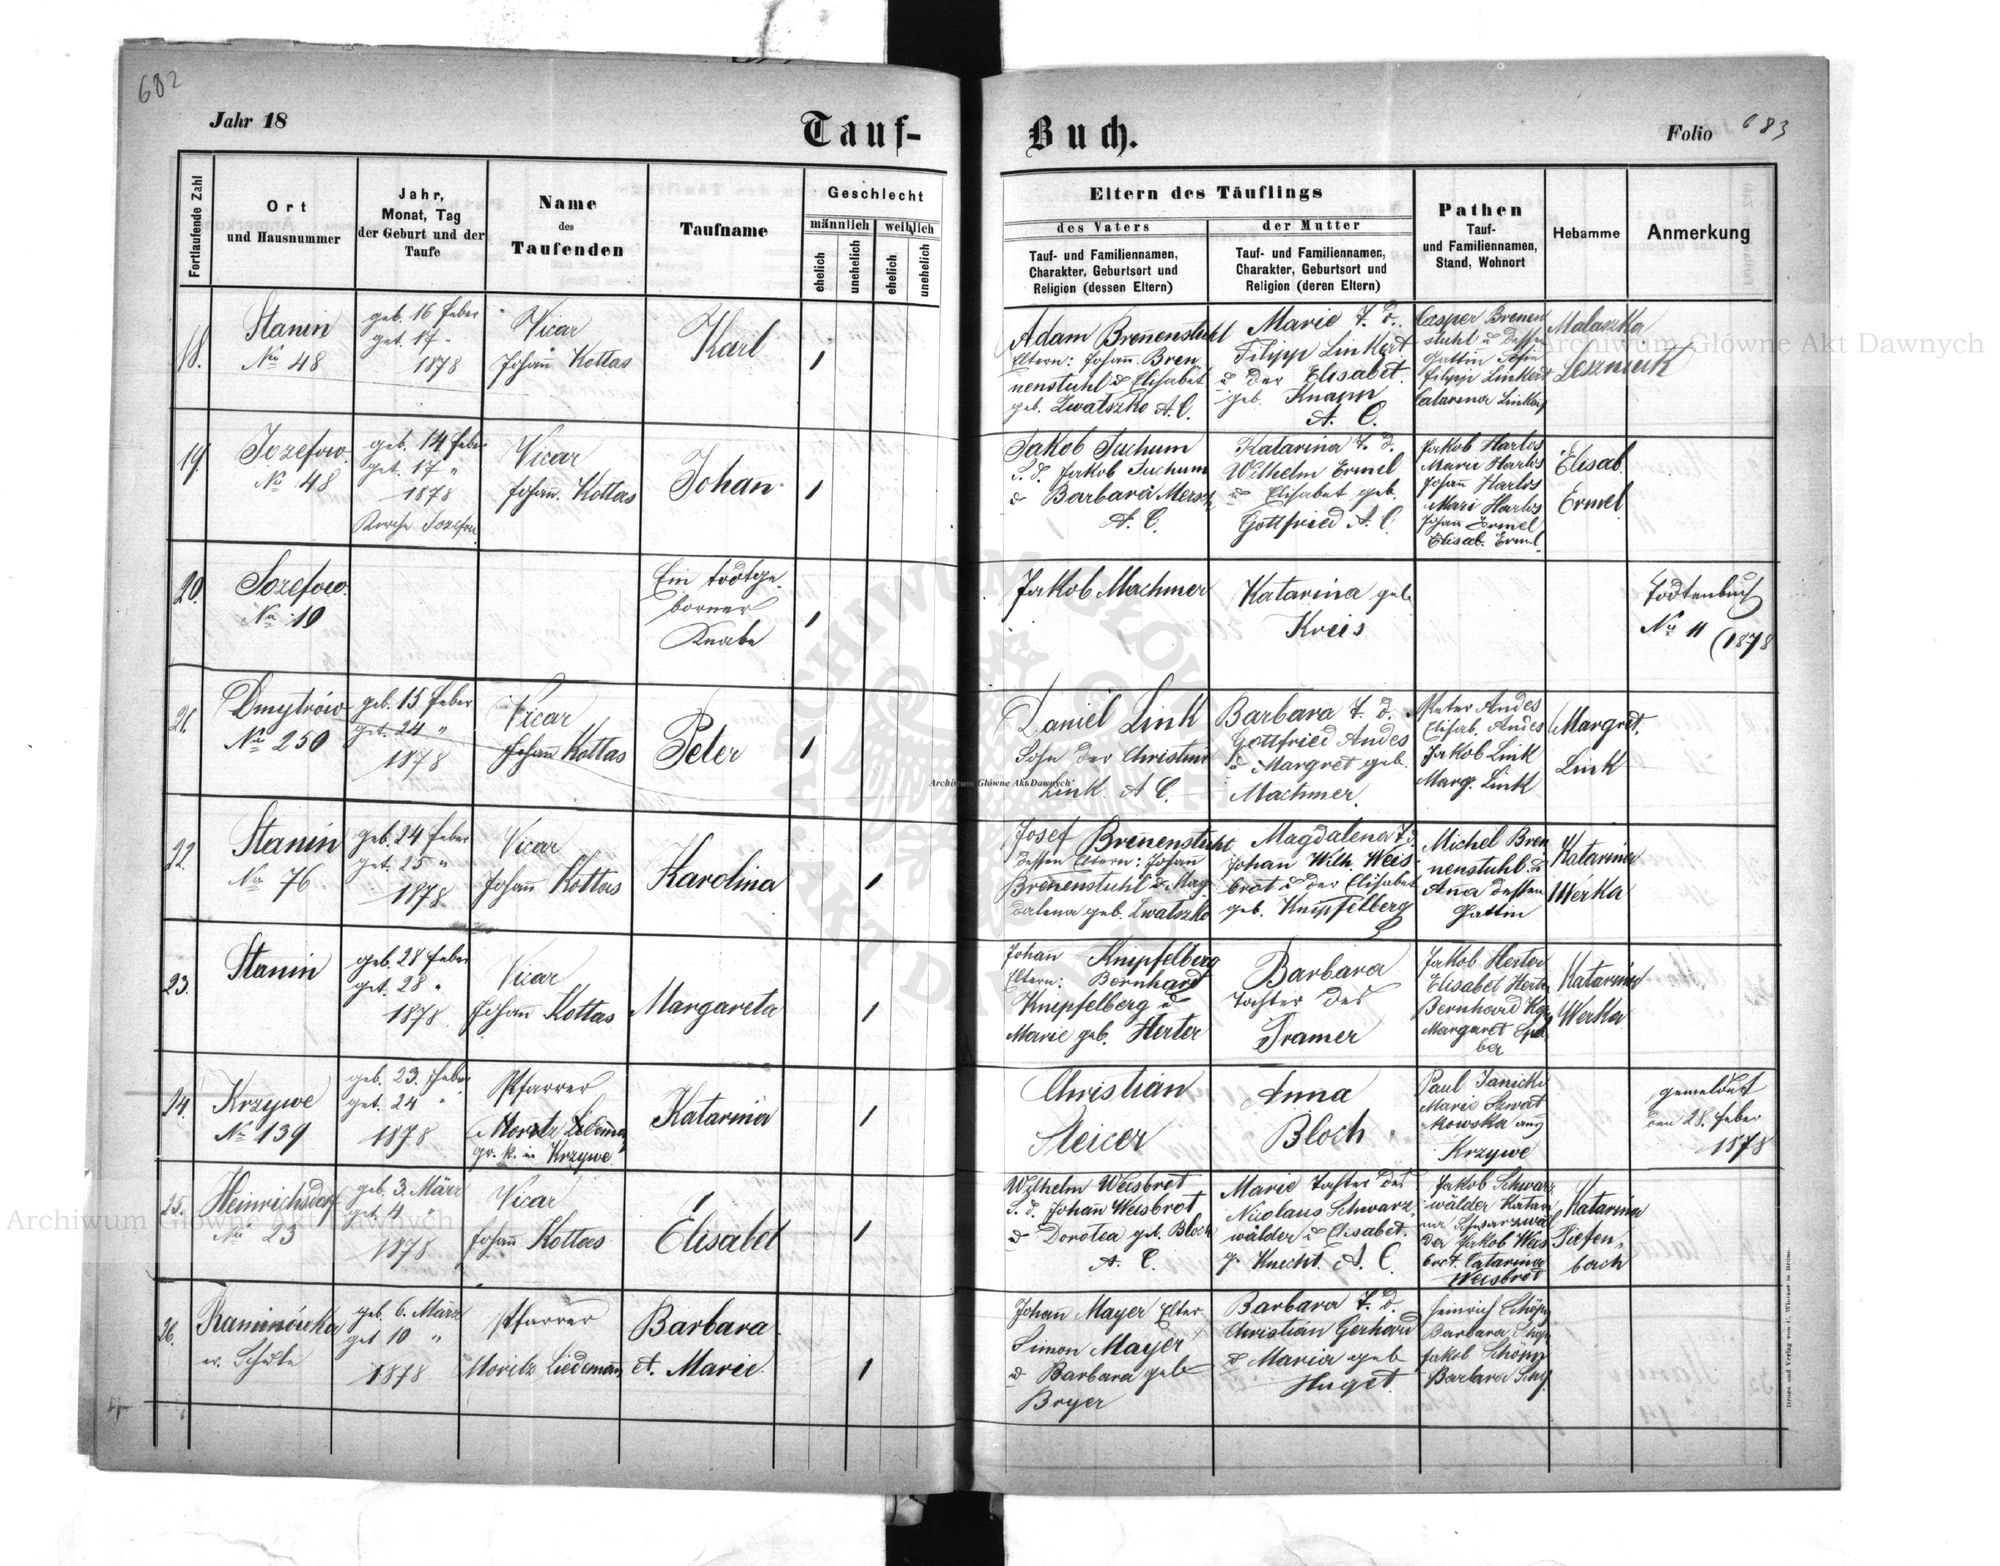 682
Jahr 18
Tauf-
Buch.
Folio 683
Fortlaufende Zahl
Ort
und Hausnummer
Jahr,
Monat, Tag
der Geburt und der
Taufe
Name
des
Taufenden
Taufname
Geschlecht
männlich
weiblich
ehelich
unehelich
ehelich
unehelich
Eltern des Täuflings
des Vaters
der Mutter
Tauf- und Familiennamen,
Charakter, Geburtsort und
Religion (dessen Eltern)
Tauf- und Familiennamen,
Charakter, Geburtsort und
Religion (deren Eltern)
Pathen
Tauf-
und Familiennamen,
Stand, Wohnort
Hebamme
Anmerkung
18.
Stanin
No 48
geb. 16 Feber
get. 17 "
1878
Vicar
Johañ Kottas
Karl
Adam Breñenstuhl
Eltern: Johañ Bren
nenstuhl u Elisabet
geb. Zwatszko A. C.
Marie T. d.
Filipp Linkert
u der Elisabet
geb. Knapp
A. C.
Casper Brenen
stuhl u dessen
Gattin Sofie
Filipp Linkert
Catarina Linkert
Malaszka
Leszniuk
19.
Jozefow
No 48
geb. 14 Feber
get. 17 "
1878
Kirche Jozefow
Vicar
Johañ Kottas
Johan
Jakob Juchum
S. d. Jakob Juchum
u Barbara
A. C.
Katarina T. d.
Wilhelm Ermel
u Elisabet geb.
Gottfried A. C.
Jakob Harlos
Marie Harlos
Johañ Harlos
Mari Harlos
Johan Ermel
Elisab. Ermel
Elisab.
Ermel
20.
Jozefow
No 10
Ein todtge
borner
Knabe
Jakob Machmer
Katarina geb
Kreis
Todtenbuch
No 11 (1878
21.
Dmytrów
No 250
geb. 15 Feber
get. 24 "
1878
Vicar
Johañ Kottas
Peter
Daniel Link
Sohn der Christine
Link. A C.
Barbara T. d.
Gottfried Andes
u Margret geb.
Machmer.
Peter Andes
Elisab. Andes
Jakob Link
Marg. Link
Margret.
Link
22.
Stanin
No 76
geb. 24 Feber
get. 25 "
1878
Vicar
Johañ Kottas
Karolina
Josef Breñenstuhl
dessen Eltern: Johañ
Breñenstuhl u. Mag
dalena geb. Zwatszko
Magdalena T d
Johañ Wilh. Weis
brot u der Elisabet
geb. Knipfelberg
Michel Bren
nenstuhl u
Ana dessen
Gattin
Katarina
Werka
23.
Stanin
geb. 28 Feber
get. 28 "
1878
Vicar
Johañ Kottas
Margareta
Johañ Knipfelberg
Eltern: Bernhard
Knipfelberg u
Marie geb. Herter
Barbara
Tochter des
Tramer
Jakob Herter
Elisabet Herter
Bernhard
Margaret
ber
Katarina
Werka
24.
Krzywe
No 139
geb. 23. Feber
get. 24 "
1878
Pfarrer
Moritz
gr. k. in Krzywe
Katarina
Christian
Steicer
Anna
Bloch
Paul Janicki
Marie Szwat
kowska aus
Krzywe
gemeldet
den 28. Feber
1878
25.
Heinrichsdorf
No 23
geb. 3. März
get. 4 "
1878
Vicar
Johañ Kottas
Elisabet
Wilhelm Weisbrot
S. d. Johan Weisbrot
u Dorotea geb. Bloch
A. C.
Marie Tochter des
Nicolaus Schwarz
wälder u Elisabet.
g. Knecht. A. C.
Jakob Schwarz
wälder Katari
na Schwarzwäl
der Jakob Weis
brot. Catarina
Weisbrod
Katarina
Tiefen„
bach
26.
Kaminówka
ev. Schule
geb. 6. März
get 10 "
1878
Pfarrer
Moritz Liedemañ
Barbara
A. Marie
Johan Mayer Elter
Simon Mayer
u Barbara geb
Boyer
Barbara T. d.
Christian Gerhard
u Maria geb
Huget.
Heinrich Schöpp
Barbara Schöpp
Jakob Schöpp
Barbara
Archiwum Główne Akt Dawnych
Archiwum Główne Akt Dawnych
Archiwum Główne Akt Dawnych